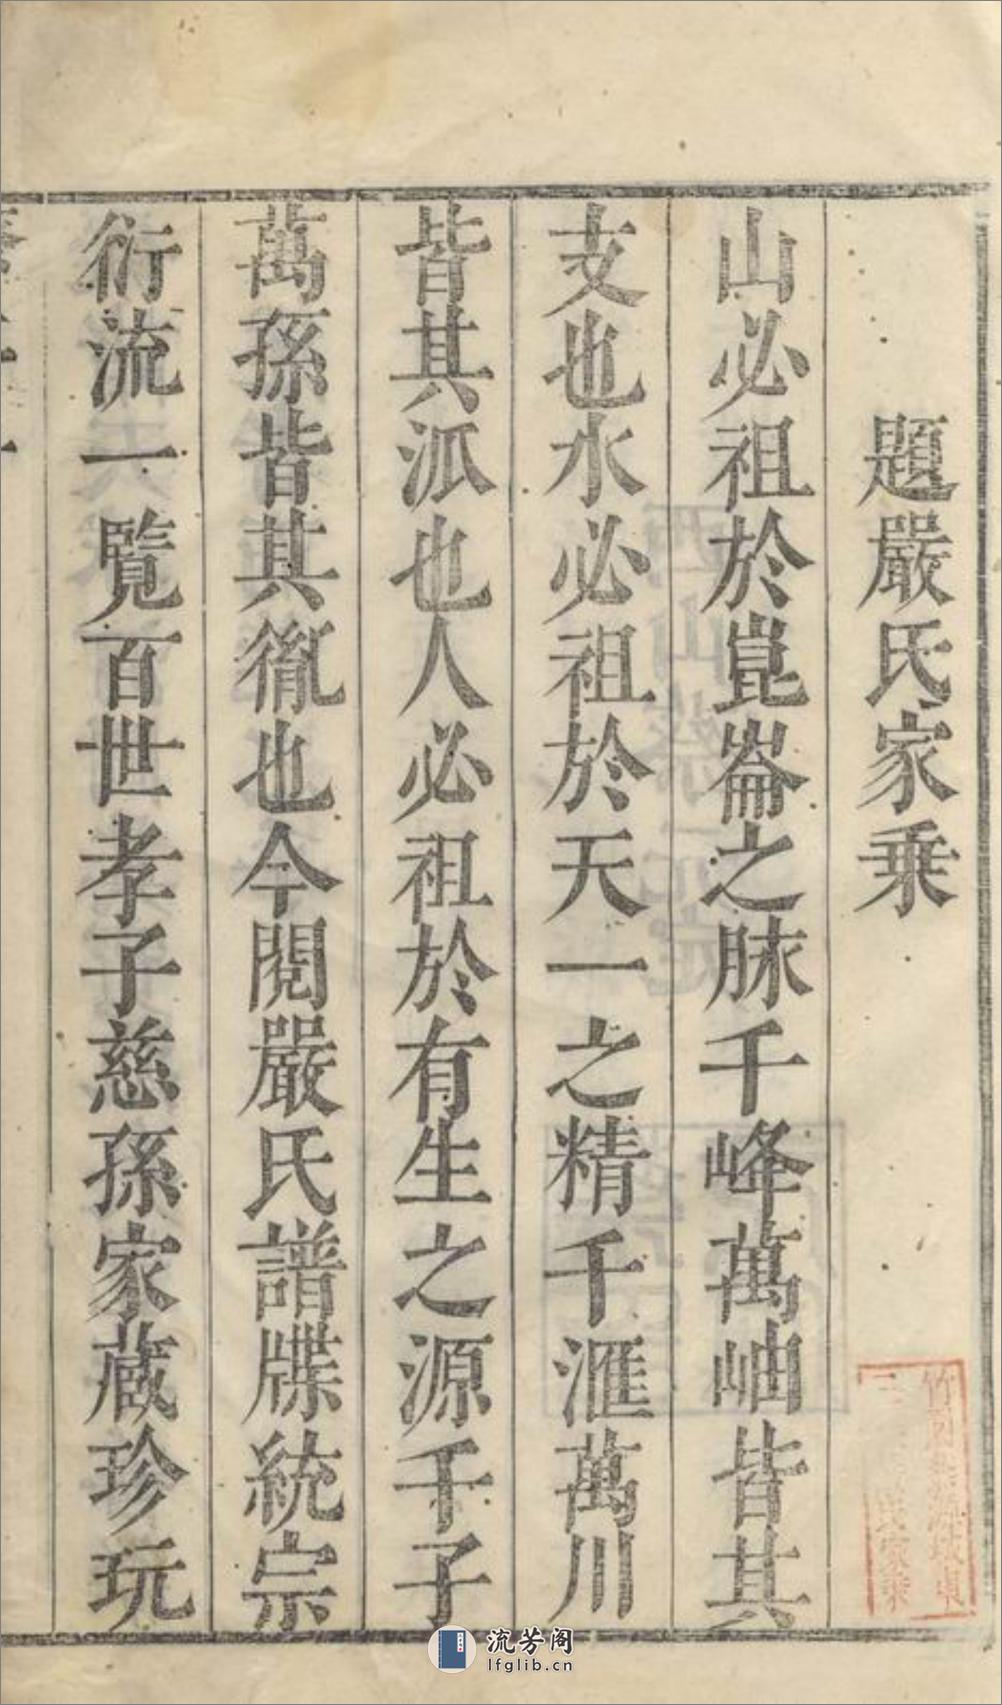 題嚴氏家乗
山必祖於崑崙之脉千峰萬岫皆其
支也水必祖於天一之精千滙萬川
皆其派也人必祖於有生之源千子
萬孫皆其胤也今閱嚴氏譜牒統宗
衍流一覽百世孝子慈孫家蔵珍玩
流芳阁
lfglib.cn